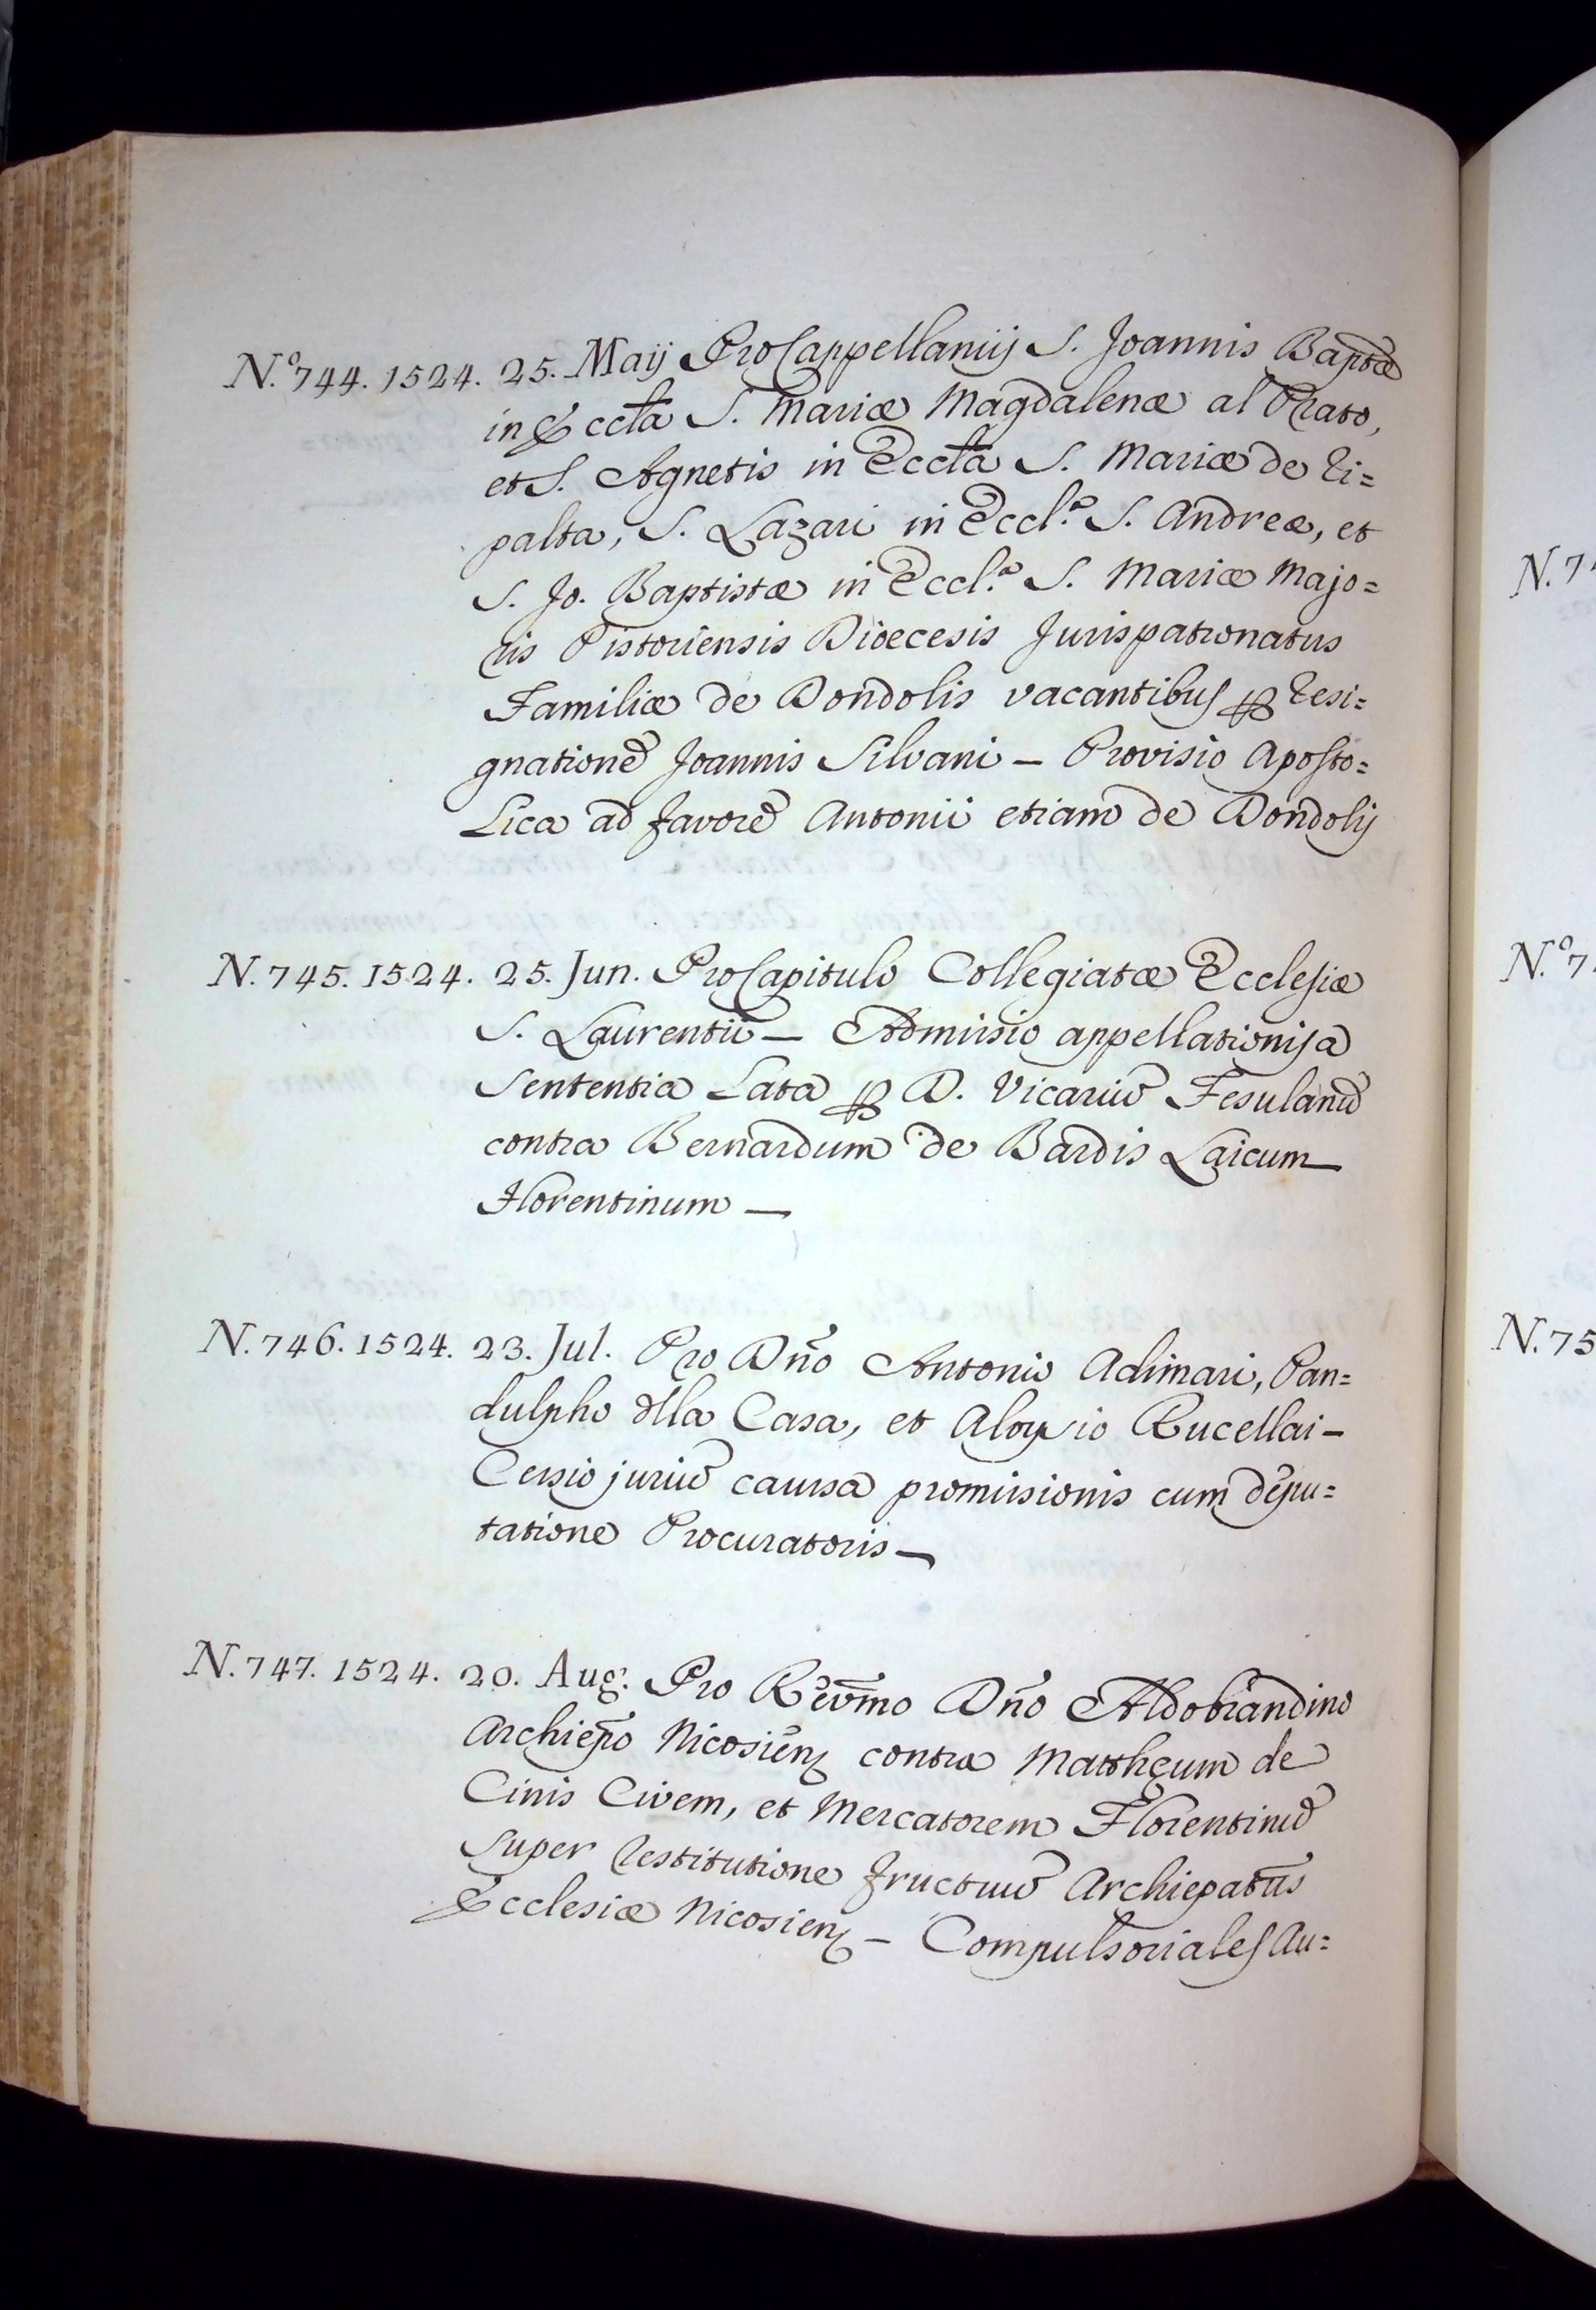 N.º 744. 1524. 25. Maij Pro Cappellaniis S. Joannis Baptæ
in Eccla S. Mariæ Magdalenæ al Prato,
et S. Agnetis in Eccla S. Mariæ de Ri=
palta, S. Lazari in Eccl.ª S. Andreæ, et
S. Jo. Baptistæ in Eccl.ª S. Mariæ Majo=
ris Pistoriensis Dioecesis Jurispatronatus
Familiæ de Dondolis vacantibus ꝑ resi=
gnatione Joannis Silvani – Provisio Aposto=
lica ad favorē Antonii etiam de Dondolij
N. 745. 1524. 25. Jun. Pro Capitulo Collegiatæ Ecclesiæ
S. Laurentii – Admissio appellationis a
Sententia Lata ꝑ D. Vicariū Fesulanū
contra Bernardum de Bardis Laicum
Florentinum –
N. 746. 1524. 23. Jul. Pro Dño Antonio Adimari, Pan=
dulpho dlla Casa, et Aloysio Rucellai –
Cessio juriū caussa promissionis cum depu=
tatione Procuratoris –
N. 747. 1524. 20. Aug. Pro Revm̃o Dño Aldobrandino
Archiepõ Nicosien contra Mattheum de
Cinis Civem, et Mercatorem Florentinū
super restitutione fructuū Archiepatūs
Ecclesiæ Nicosien – Compulsoriales Au=
N. 7
N.º 7
N. 75